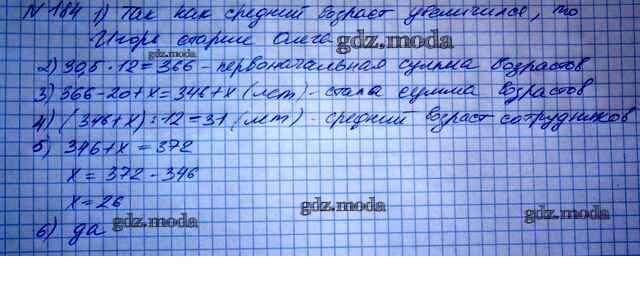 №184 1) Так как средний возраст увеличился, то
Игорь старше Олега
gdz.moda
gdz.moda
2) 30,5·12=366 - первоначальная сумма возрастов
3) 366-20+x=346+x (лет) - стала сумма возрастов
gdz.moda
4) (346+x):12=31 (лет) - средний возраст сотрудников
5) 346+x=372
x=372-346
x=26
gdz.moda
gdz.moda
gdz.moda
6) да